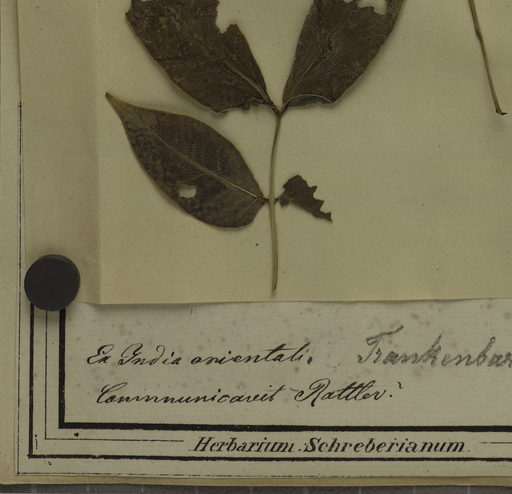 Ex India orientali. Frankenbar
Communicavit Rottler.
Herbarium Schreberianum